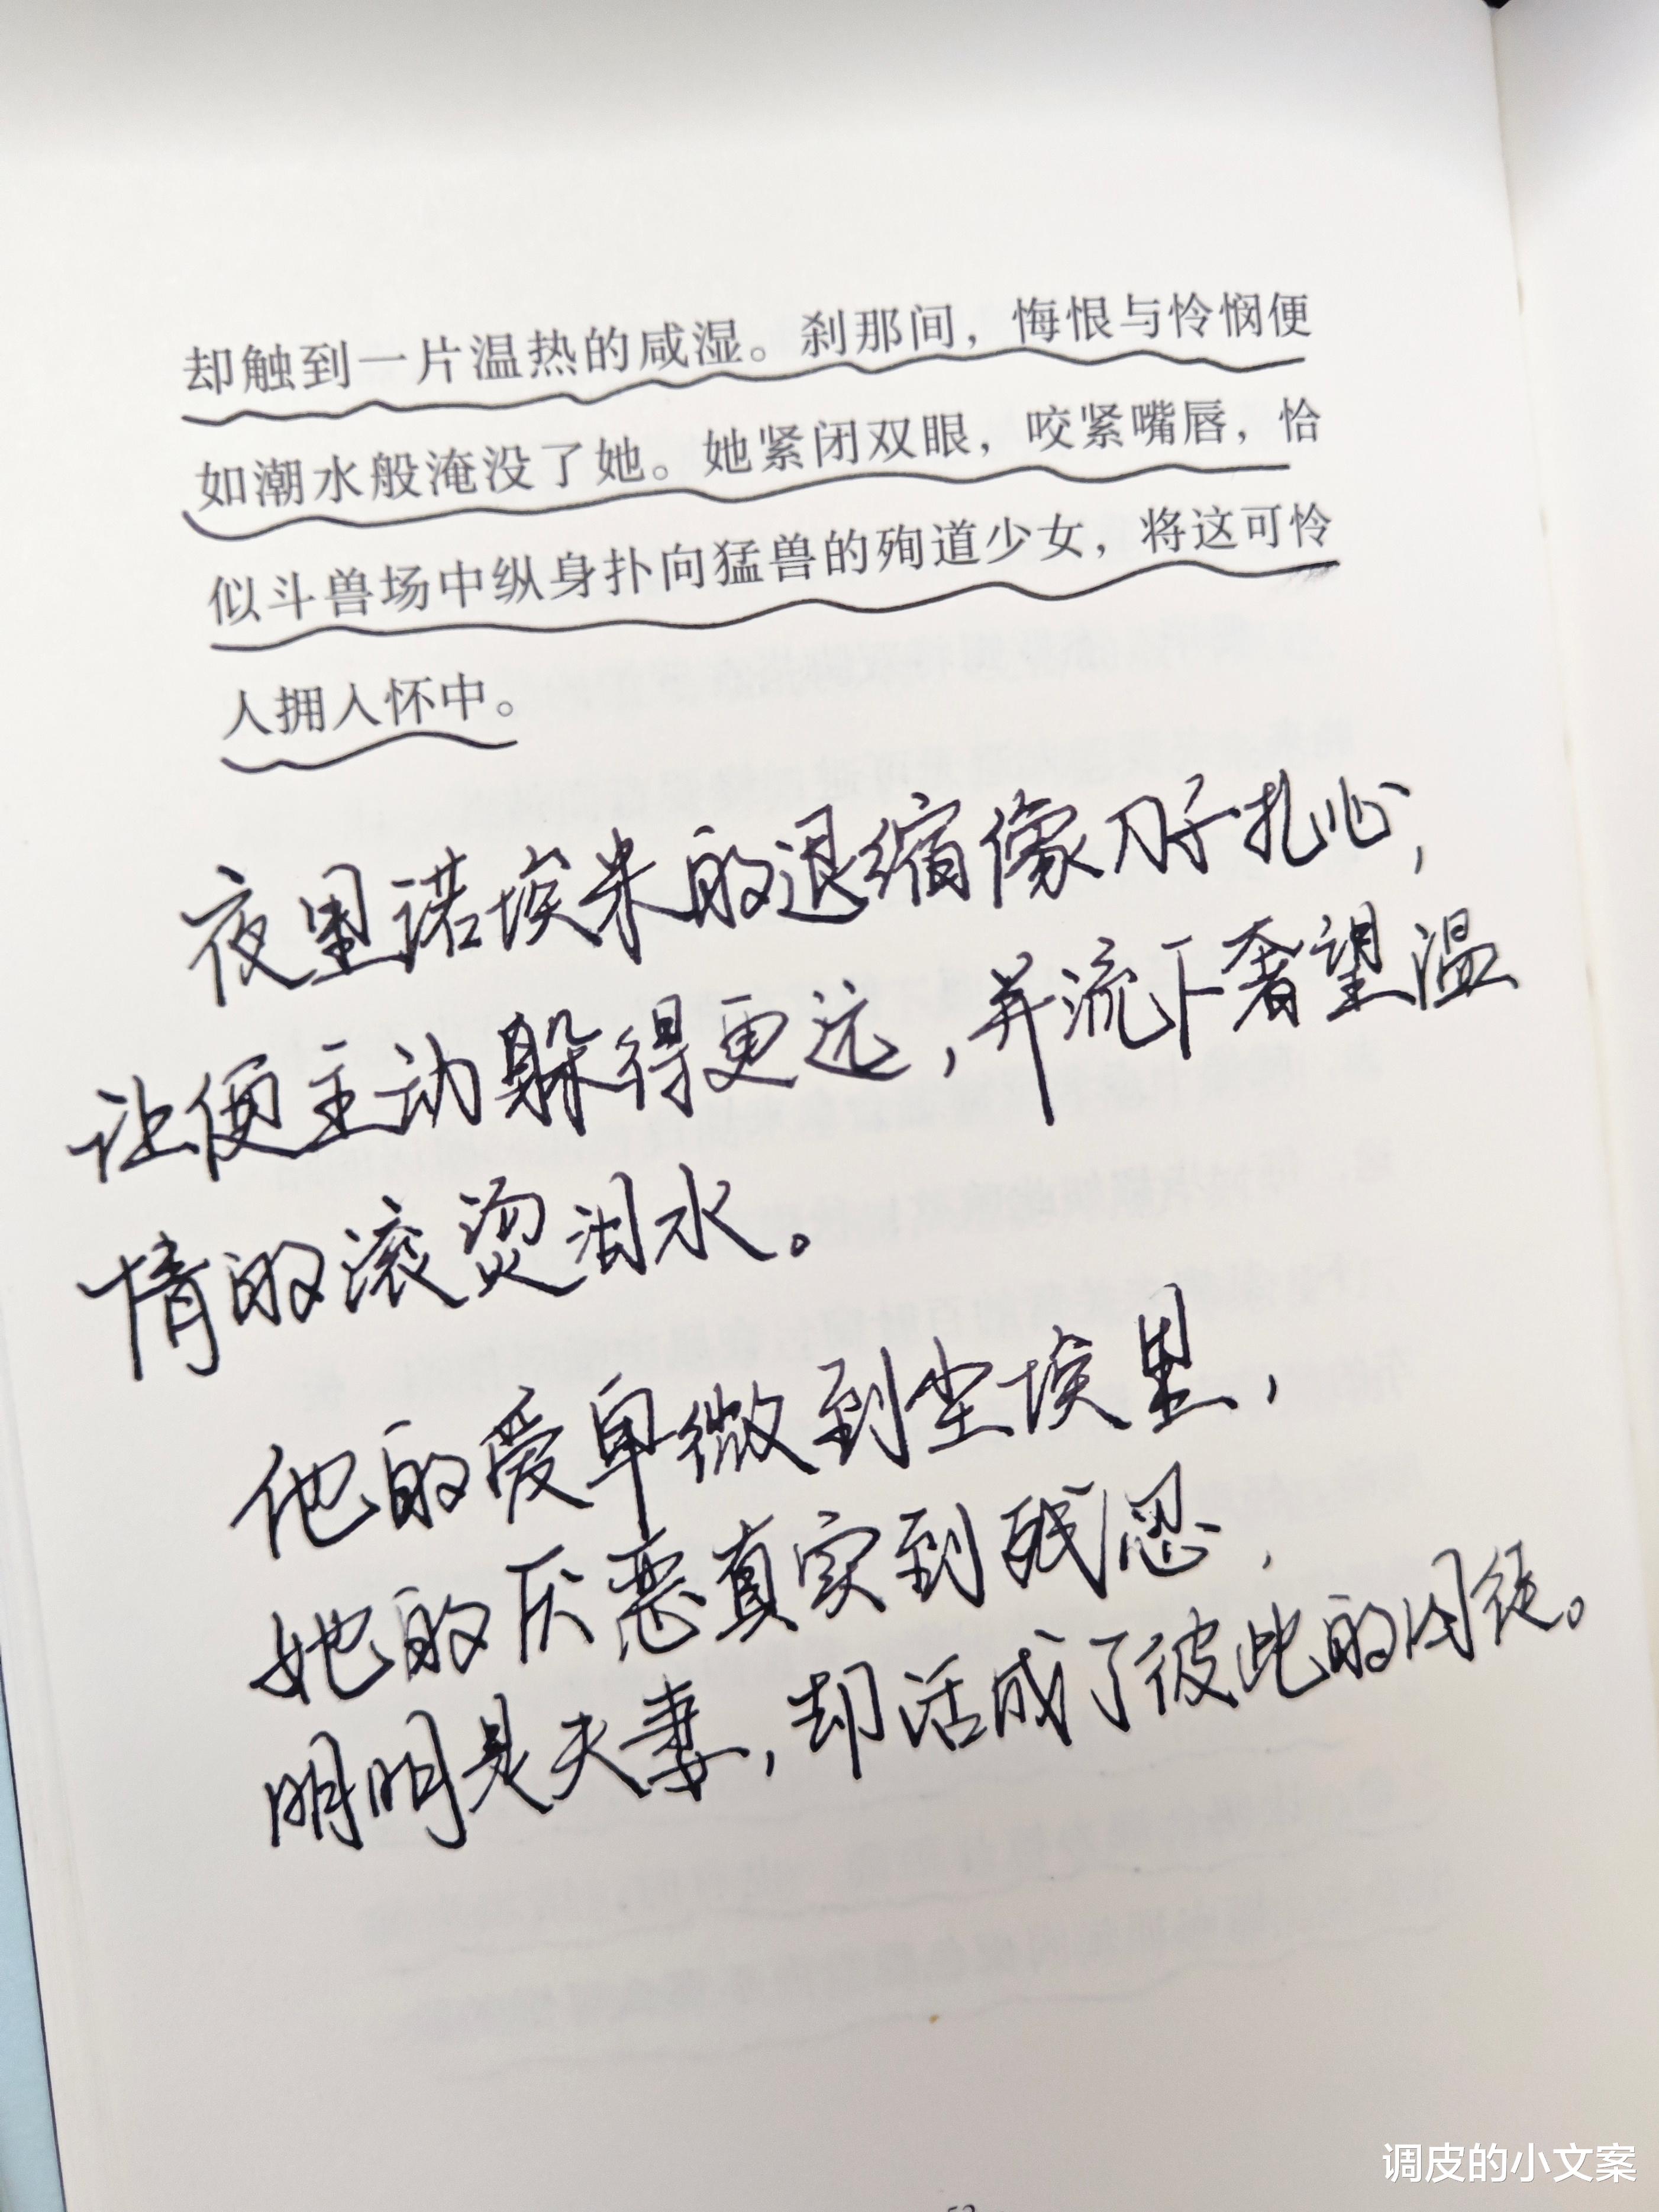 却触到一片温热的咸湿。刹那间，悔恨与怜悯便
如潮水般淹没了她。她紧闭双眼，咬紧嘴唇，恰
似斗兽场中纵身扑向猛兽的殉道少女，将这可怜
人拥入怀中。
夜里诺埃米的退缩像刀子扎心，
让便主动躲得更远，并流下奢望温
情的滚烫泪水。
他的爱卑微到尘埃里，
她的厌恶真实到残忍，
明明是夫妻，却活成了彼此的囚徒。
调皮的小文案